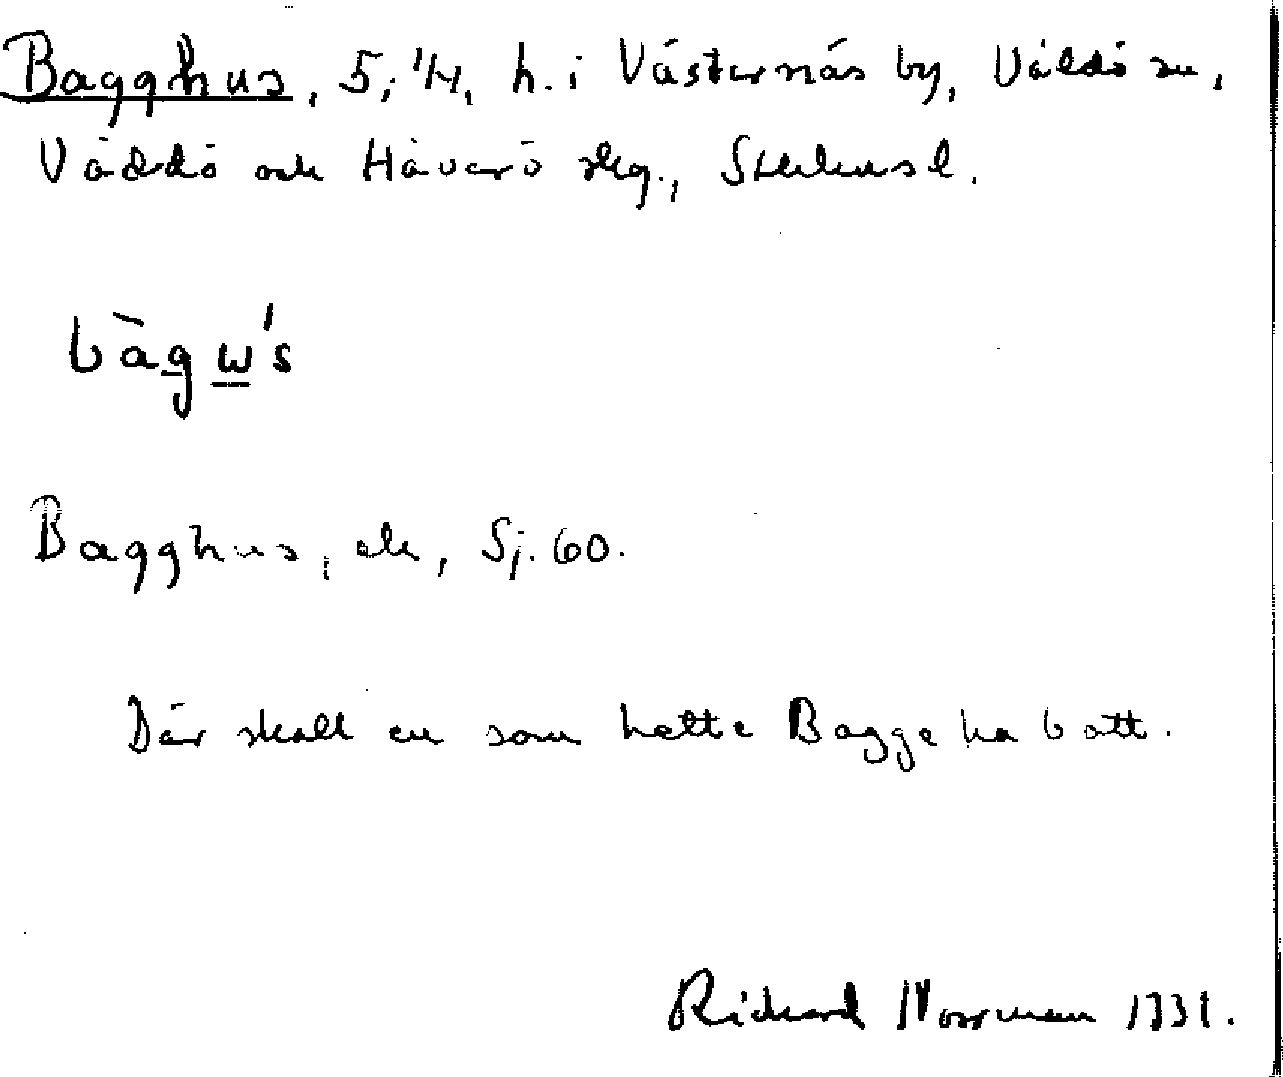 Bagghus, 5; 1/4, h. i Västernäs by, Väddö sn,
Väddö och Häverö skg., Sthlms l.
bàgw's
Bagghus, ek, Sj. 60.
Där skall en som hette Bagge ha bott.
Richard Norrman 1931.